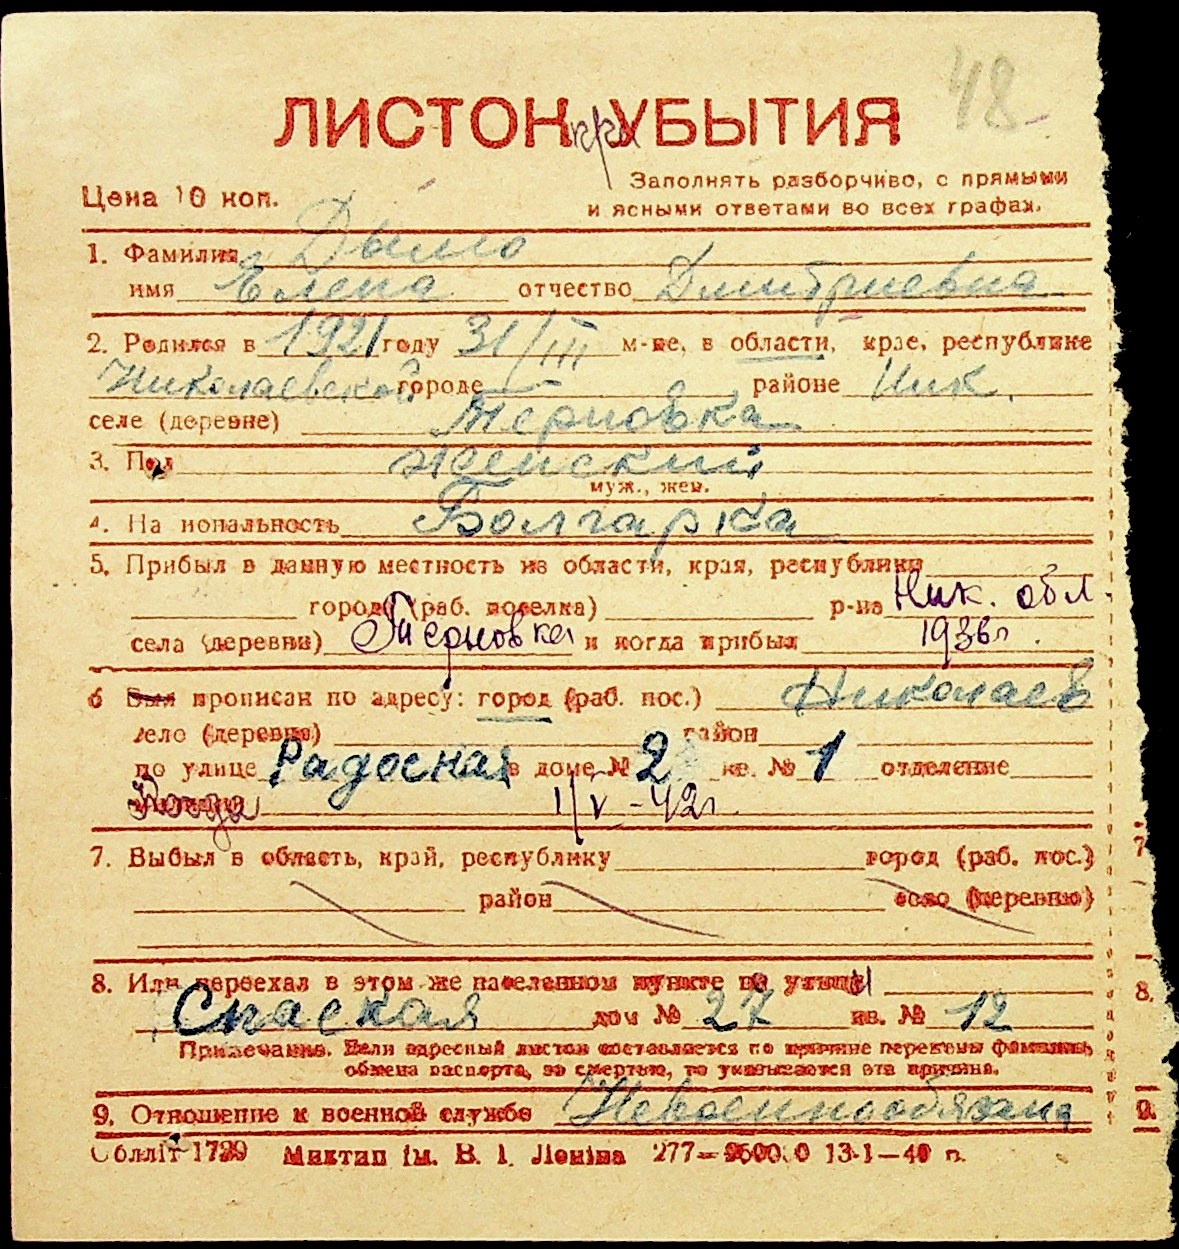 48
ЛИСТОК при УБЫТИЯ
Цена 10 коп.
Заполнять разборчиво, с прямыми
и ясными ответами во всех графах.
1. Фамилия Дымо
имя Елена отчество Дмитриевна
2. Родился в 1921 году 31/III м-це, в области, крае, республике
Николаевской городе — районе Ник.
селе (деревне) Терновка
3. Пол женский
муж., жен.
4. На иональность Болгарка
5. Прибыл в данную местность из области, края, республики
города (раб. поселка) р-на Ник. обл.
села (деревни) Терновка и когда прибыл 1936г.
6 Был прописан по адресу: город (раб. пос.) Николаев
село (деревня) район
по улице Радосная в доме № 2 кв. № 1 отделение
Когда 1/V-42г.
7. Выбыл в область, край, республику город (раб. пос.)
район село (деревню)
8. Или переехал в этом же населенном пункте по улицы
Спаская дом № 27 кв. № 12
Примечание. Если адресный листок составляется по причине перемены фамилии,
обмена паспорта, за смертью, то указывается эта причина.
9. Отношение к военной службе Невоеннообязана
Обліт 1739 Миктип ім. В. І. Леніна 277— 13-1—40 г.
7
8.
9.